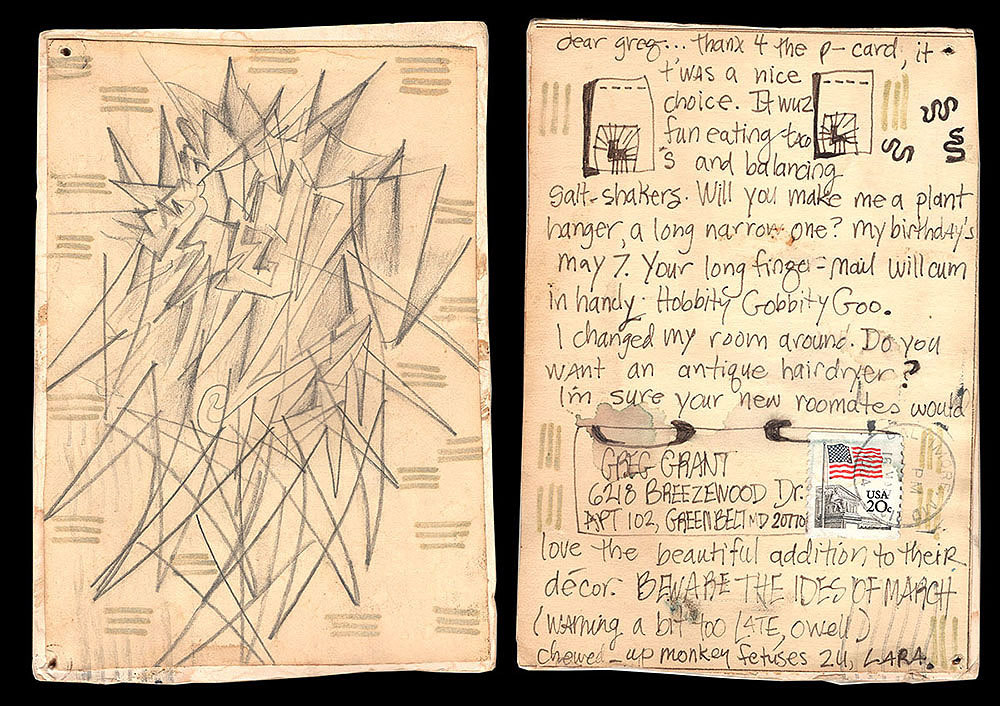 dear greg... thanx 4 the p-card, it
t'was a nice
choice. It wuz
fun eating
's and balancing
salt-shakers. Will you make me a plant
hanger, a long narrow one? my birthday's
may 7. Your long finger-mail will cum
in handy. Hobbity Gobbity Goo.
I changed my room around. Do you
want an antique hairdryer?
I'm sure your new roomates would
GREG GRANT
6218 BREEZEWOOD Dr.
APT 102, GREENBELT MD 20770
USA
20c
PM
love the beautiful addition to their
décor. BEWARE THE IDES OF MARCH
(warning a bit too LATE, owell)
chewed-up monkey fetuses 2U, LARA.